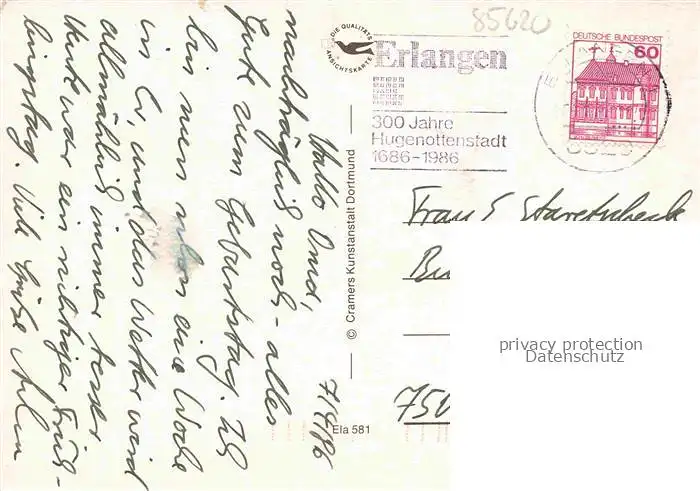 85620
DIE QUALITÄTS
ANSICHTSKARTE
Erlangen
300 Jahre
Hugenottenstadt
1686-1986
DEUTSCHE BUNDESPOST
60
7/4/86
Hallo Omi,
nachträglich noch - alles
Gute zum Geburtstag. Ich
bin nun schon eine Woche
in E, und das Wetter wird
allmählich immer besser
Heute war ein richtiger Früh-
lingstag. Viele Grüße
© Cramers Kunstanstalt Dortmund
Ela 581
Frau E
750
privacy protection
Datenschutz